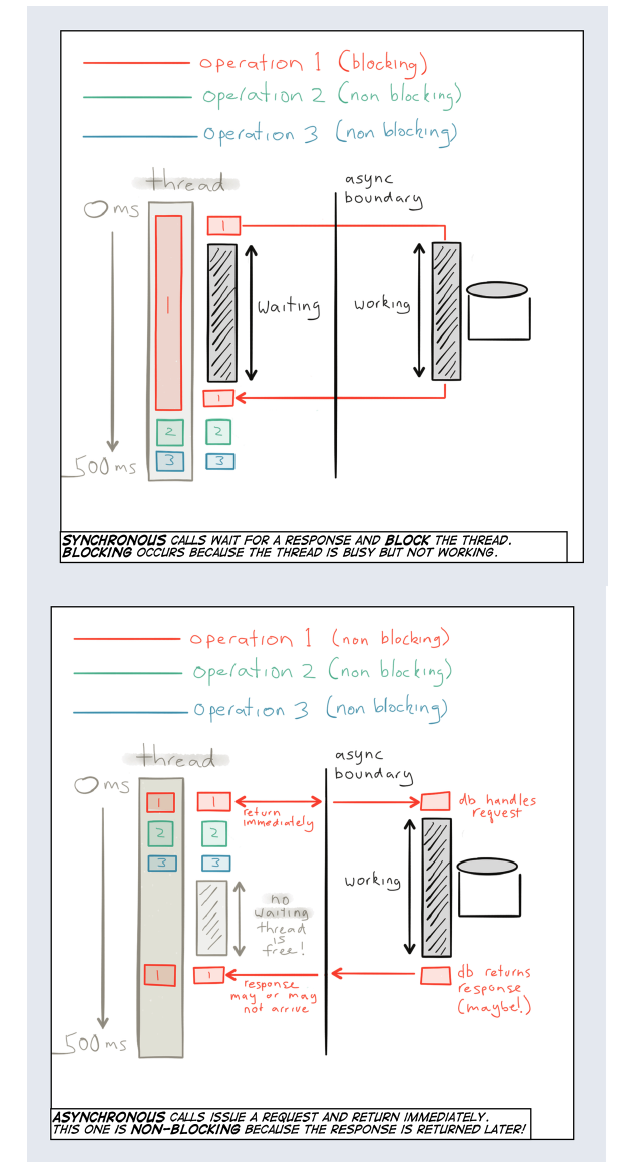 operation 1 (blocking)
operation 2 (non blocking)
operation 3 (non blocking)
thread
async
boundary
0 ms
1
1
waiting
working
1
2
2
3
3
500 ms
SYNCHRONOUS CALLS WAIT FOR A RESPONSE AND BLOCK THE THREAD.
BLOCKING OCCURS BECAUSE THE THREAD IS BUSY BUT NOT WORKING.
operation 1 (non blocking)
operation 2 (non blocking)
operation 3 (non blocking)
thread
async
boundary
0 ms
1
1
return
immediately
db handles
request
2
2
3
3
working
no
waiting
thread
is
free!
1
1
response
may or may
not arrive
db returns
response
(maybe!)
500 ms
ASYNCHRONOUS CALLS ISSUE A REQUEST AND RETURN IMMEDIATELY.
THIS ONE IS NON-BLOCKING BECAUSE THE RESPONSE IS RETURNED LATER!